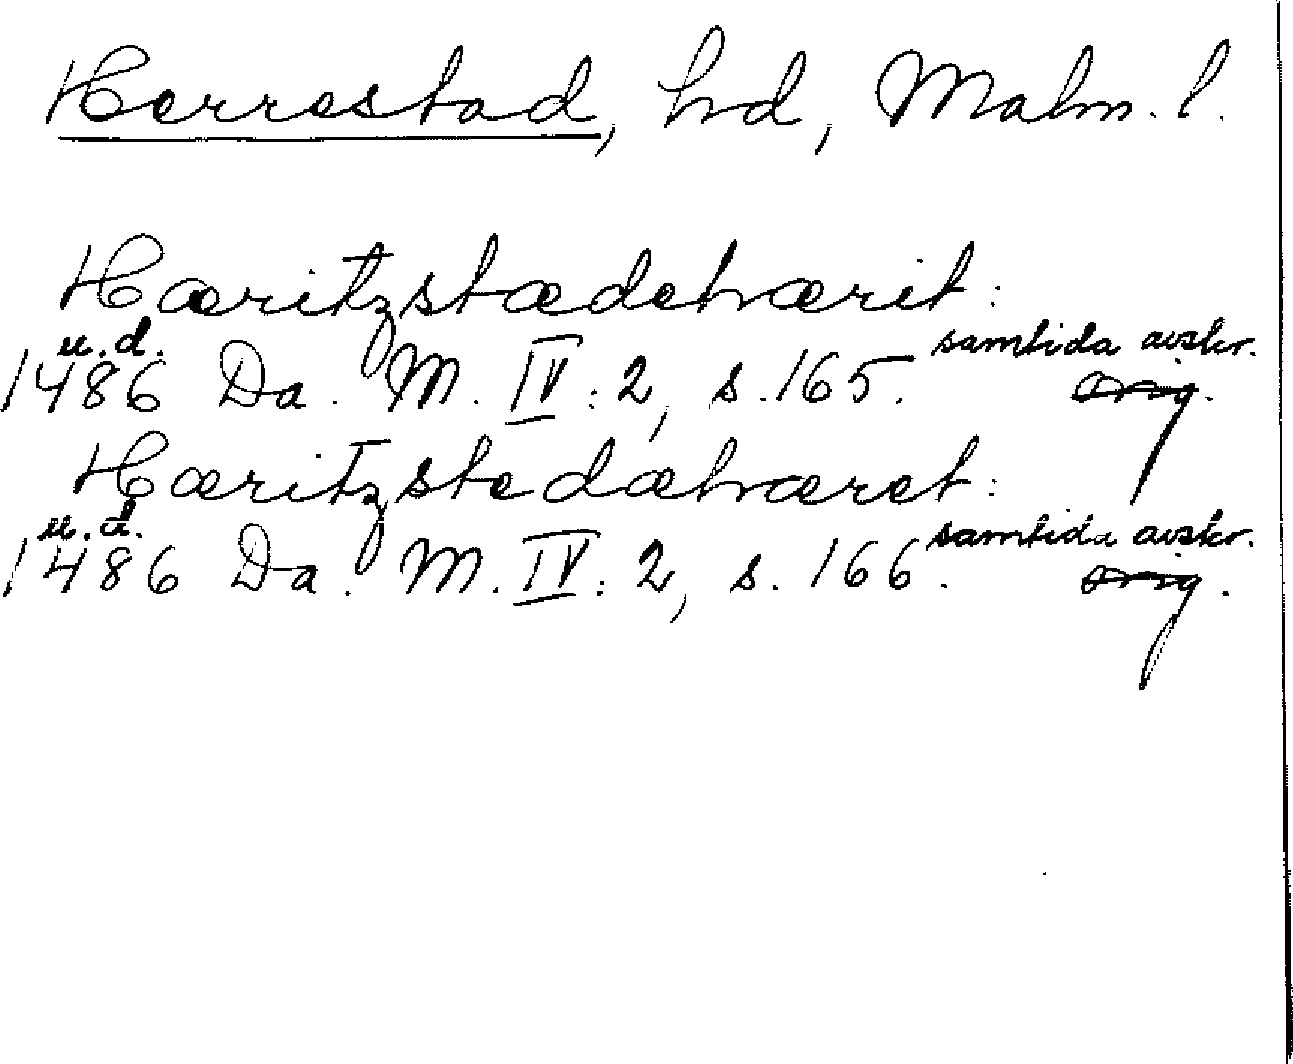 Herrestad, hd, Malm. l.
Hæritzstædehærit:
u.d. samtida avskr.
1486 Da. M. IV:2, s. 165. orig.
Hæritzstedæhæret:
u.d. samtida avskr.
1486 Da. M. IV:2, s. 166. orig.